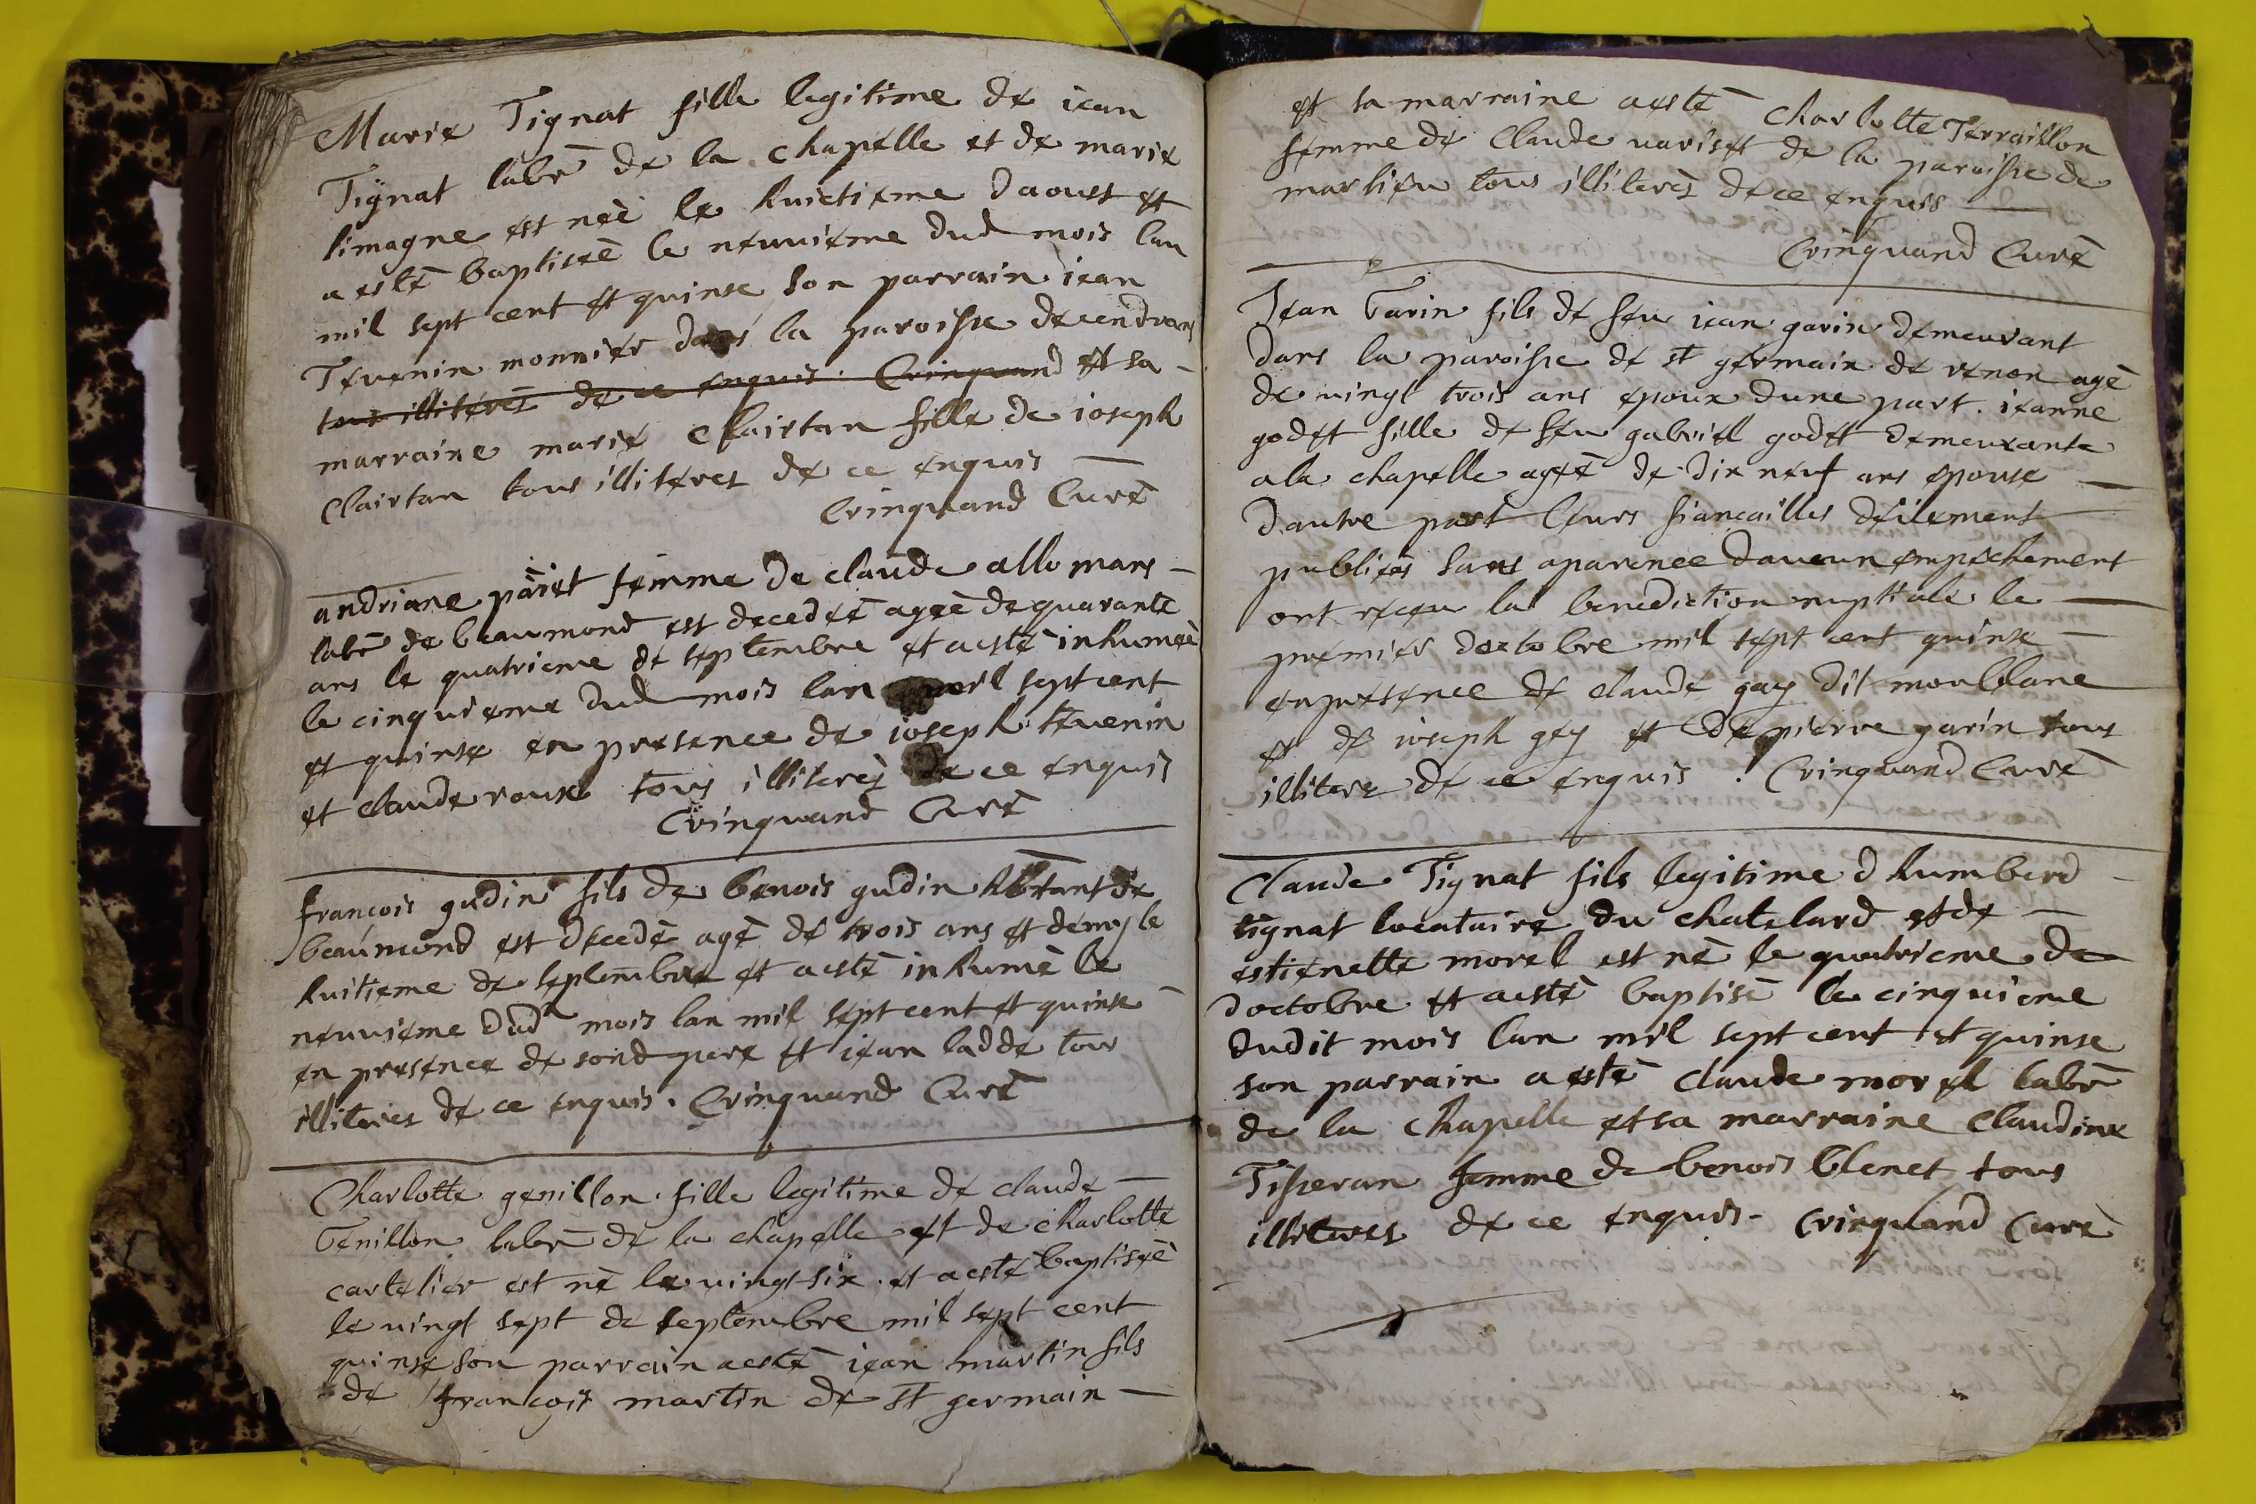 Marie Tignat fille legitime de iean
Tignat labr de la chapelle et de marie
limagne est neè le huictieme daoust et
a estè baptiseè le neuuieme dud mois lan
mil sept cent et quinse son parrain iean
Teuenin monnier dans la paroisse de cendrans
tous illiterès de ce enquis. Crinquand et sa
marraine marie Clairtan fille de ioseph
Clairtan tous illiteres de ce enquis
Crinquand Curè
andriane pariet femme de claude allomars
labr de beaumond est decedeè ageè de quarante
ans le quatrieme de septembre et aestè inhumeè
le cinquieme dud mois lan mil sept cent
et quinse en presence de ioseph teuenin
et claude roux tous illiterès de ce enquis
Crinquand Curè
françois gudin fils de benois gudin habitant de
beaumond est decedè agè de trois ans et demy le
huitieme de septembre et aestè inhumè le
neuuieme dud mois lan mil sept cent et quinse
en presence de sond pere et iean ladde tous
illiteres de ce enquis. Crinquand Curè
Charlotte genillon fille legitime de claude
Genillon labr de la chapelle et de charlotte
cartelier est nè le uingt six et aestè baptiseè
le uingt sept de septembre mil sept cent
quinse son parrain aestè iean martin fils
de françois martin de st germain
et sa marraine aestè Charlotte Terraillon
femme de Claude uariset de la paroisse de
marlieu tous illiterès de ce enquis
Crinquand Curè
Iean Garin fils de feu iean garin demeurant
dans la paroisse de st germain de renon agè
de uingt trois ans epoux dune part. ieanne
godet fille de feu gabriel godet demeurante
a la chapelle ageè de dix neuf ans epouse
dautre part leurs fiançailles deüement
publieès sans aparence daucun empechement
ont receu la benediction nuptiale le
premier doctobre mil sept cent quinse
en presence de claude gay dit monblanc
et de ioseph gey et de pierre garin tous
illiteres de ce enquis. Crinquand Curè
Claude Tignat fils legitime d humberd
tignat locataire du chatelard et de
estienette morel est nè le quatrieme de
doctobre et aestè baptisè le cinquieme
dudit mois lan mil sept cent et quinse
son parrain a estè claude morel labr
de la chapelle et sa marraine Claudine
Tisseran femme de benois blenet tous
illiteres de ce enquis. Crinquand Curè